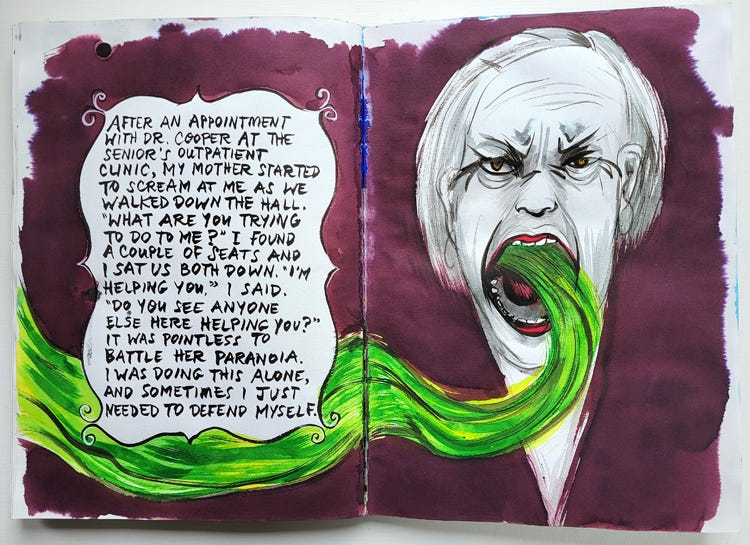 AFTER AN APPOINTMENT
WITH DR. COOPER AT THE
SENIOR'S OUTPATIENT
CLINIC, MY MOTHER STARTED
TO SCREAM AT ME AS WE
WALKED DOWN THE HALL.
"WHAT ARE YOU TRYING
TO DO TO ME?" I FOUND
A COUPLE OF SEATS AND
I SAT US BOTH DOWN. "I'M
HELPING YOU." I SAID.
"DO YOU SEE ANYONE
ELSE HERE HELPING YOU?"
IT WAS POINTLESS TO
BATTLE HER PARANOIA.
I WAS DOING THIS ALONE,
AND SOMETIMES I JUST
NEEDED TO DEFEND MYSELF.